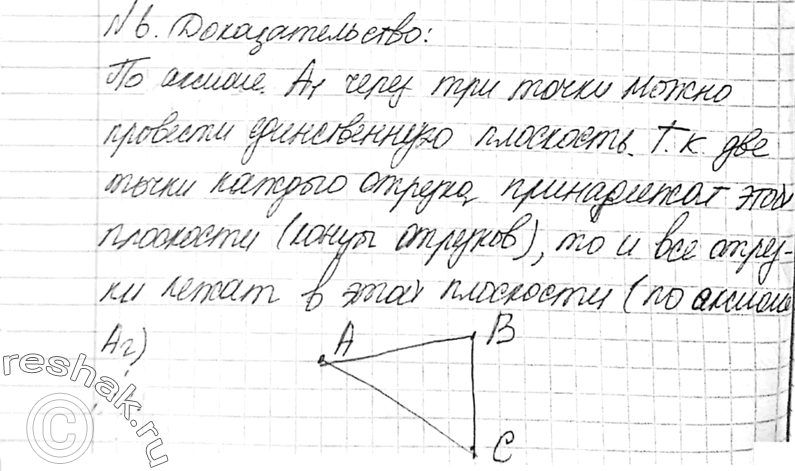 №6. Доказательство:
По аксиоме. А₁ через три точки можно
провести единственную плоскость. Т.к. две
точки каждого отрезка принадлежат этой
плоскости (концы отрезков), то и все отрез-
ки лежат в этой плоскости (по аксиоме
А₂)
A
B
C
reshak.ru
©